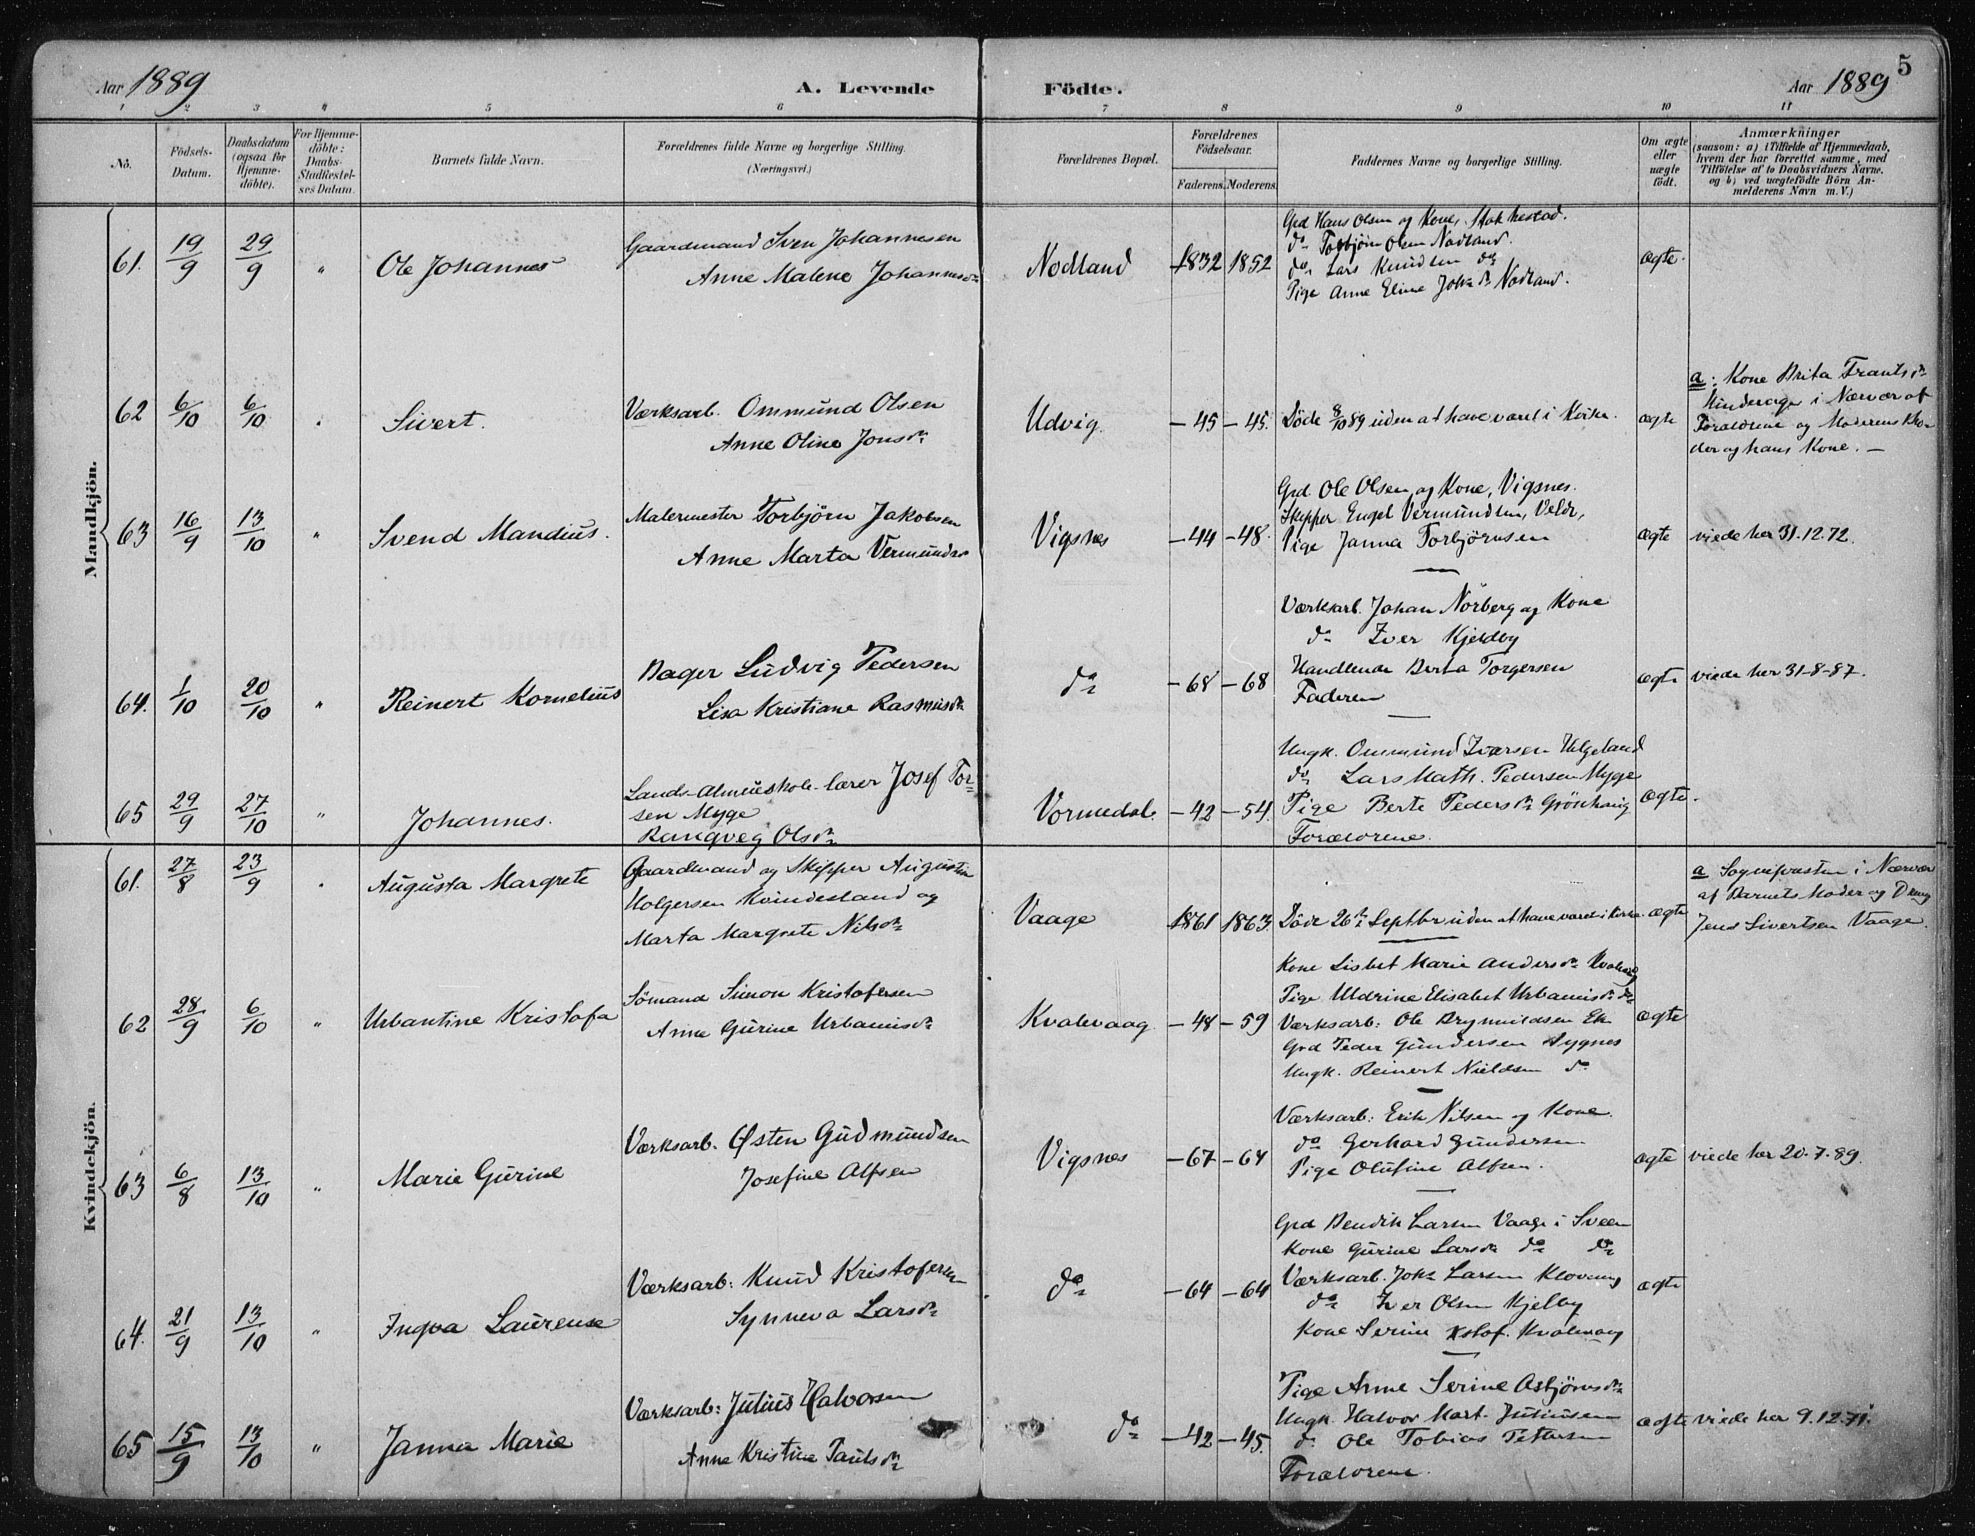 Aar 1889
A. Levende
Födte.
Aar 1889
5
1 2 3 4 5 6 7 8 9 10 11
No.
Födsels-
Datum.
Daabsdatum
(ogsaa for
Hjemme-
döbte).
For Hjemme-
döbte:
Daabs-
Stadfæstel-
ses Datum.
Barnets fulde Navn.
Forældrenes fulde Navne og borgerlige Stilling.
(Næringsvei.)
Forældrenes Bopæl.
Forældrenes
Födselsaar.
Faderens. Moderens.
Faddernes Navne og borgerlige Stilling.
Om ægte
eller
uægte
födt.
Anmærkninger
(saasom: a) i Tilfælde af Hjemmedaab,
hvem der har forrettet samme, med
Tilföielse af to Daabsvidners Navne.
og b) ved uægtefödte Börn An-
melderens Navn m. V.)
Mandkjön.
61. 19/9 29/9 " Ole Johannes
Gaardmand Sven Johannesen
Anne Malene Johannesdr
Nodland 1832 1852
Grd Hans Olsen og Kone, Stokkestad.
do Torbjörn Olsen Nodland.
do Lars Knudsen do
Pige Anne Eline Johs dr Nodland.
ægte.
62 6/10 6/10 " Sivert.
Værksarb. Ommund Olsen
Anne Oline Jonsdr
Udvig. -45 -45.
Döde 8/10 89 uden at have været i Kirke.
ægte
a: Kone Brita Frantsdr
i Nærvær af
Forældrene og Moderens Bro-
der og hans Kone. —
63 16/9 13/10 " Svend Mandius.
Malermester Torbjörn Jakobsen
Anne Marta Vermundsdr
Vigsnes -44 -48.
Grd. Ole Olsen og Kone, Vigsnes.
Skipper Engel Vermundsen, Velde,
Pige Janna Torbjörnsen
ægte viede her 31.12.72.
64. 1/10 20/10 " Reinert Kornelius
Bager Ludvig Pedersen
Lisa Kristiane Rasmusdr
do -68 -68
Værksarb. Johan Nörberg og Kone
do Iver Kjeldby
Handlende Berta Torgersen
Faderen
ægte viede her 31-8-87.
65 29/9 27/10 " Johannes.
Lands-Almueskole-lærer Josef Tor-
sen Myge
Rangveg Olsdr
Vormedal. -42 -54.
Ungk. Ommund Iversen Helgeland
do Lars Math. Pedersen Myge
Pige Berte Pedersdr Grönhaug
Forældrene.
ægte.
Kvindekjön.
61. 27/8 23/9 " Augusta Margrete
Gaardmand og Skipper Augustin
Holgersen Kvindesland og
Marta Margrete Nilsdr
Vaage 1861 1863.
Döde 26de Septbr uden at have været i Kirke.
ægte
a Sognepresten i Nærvær
af Barnets Moder og Dreng
Jens Sivertsen Vaage.
62 28/9 6/10 " Urbantine Kristofa
Sömand Simon Kristofersen
Anne Gurine Urbanusdr
Kvalevaag. -48 -59
Kone Lisbet Marie Andersdr Kvalevag
Pige Uldrine Elisabet Urbanusdr do
Værksarb: Ole Brynnildsen Eh
Grd Peder Gundersen Sygnes
Ungk. Reinert Nieldsen do
ægte
63 6/8 13/10 " Marie Gurine
Værksarb. Østen Gudmundsen
Josefine Alfsen
Vigsnes -67 -64
Værksarb: Erik Nilsen og Kone.
do Gerhard Gundersen
Pige Olufine Alfsen.
ægte viede her 20-7-89.
64. 21/9 13/10 " Ingva Laurense
Værksarb: Knud Kristofersen
Synneva Larsdr
do -64 -64
Grd Bendik Larsen Vaage i Sveen
Kone Gurine Larsdr do do
Værksarb. Johs Larsen Klovning
do Iver Olsen Kjelby
Kone Serine Kstof. Kvalevaag
ægte
65 15/9 13/10 " Janna Marie
Værksarb: Julius Halvorsen
Anne Kristine Paulsdr
do -42 -45.
Pige Anne Serine Asbjörnsdr
Ungk. Halvor Mart. Juliussen
do Ole Tobias Pettersen
Forældrene.
ægte viede her 9.12.71.